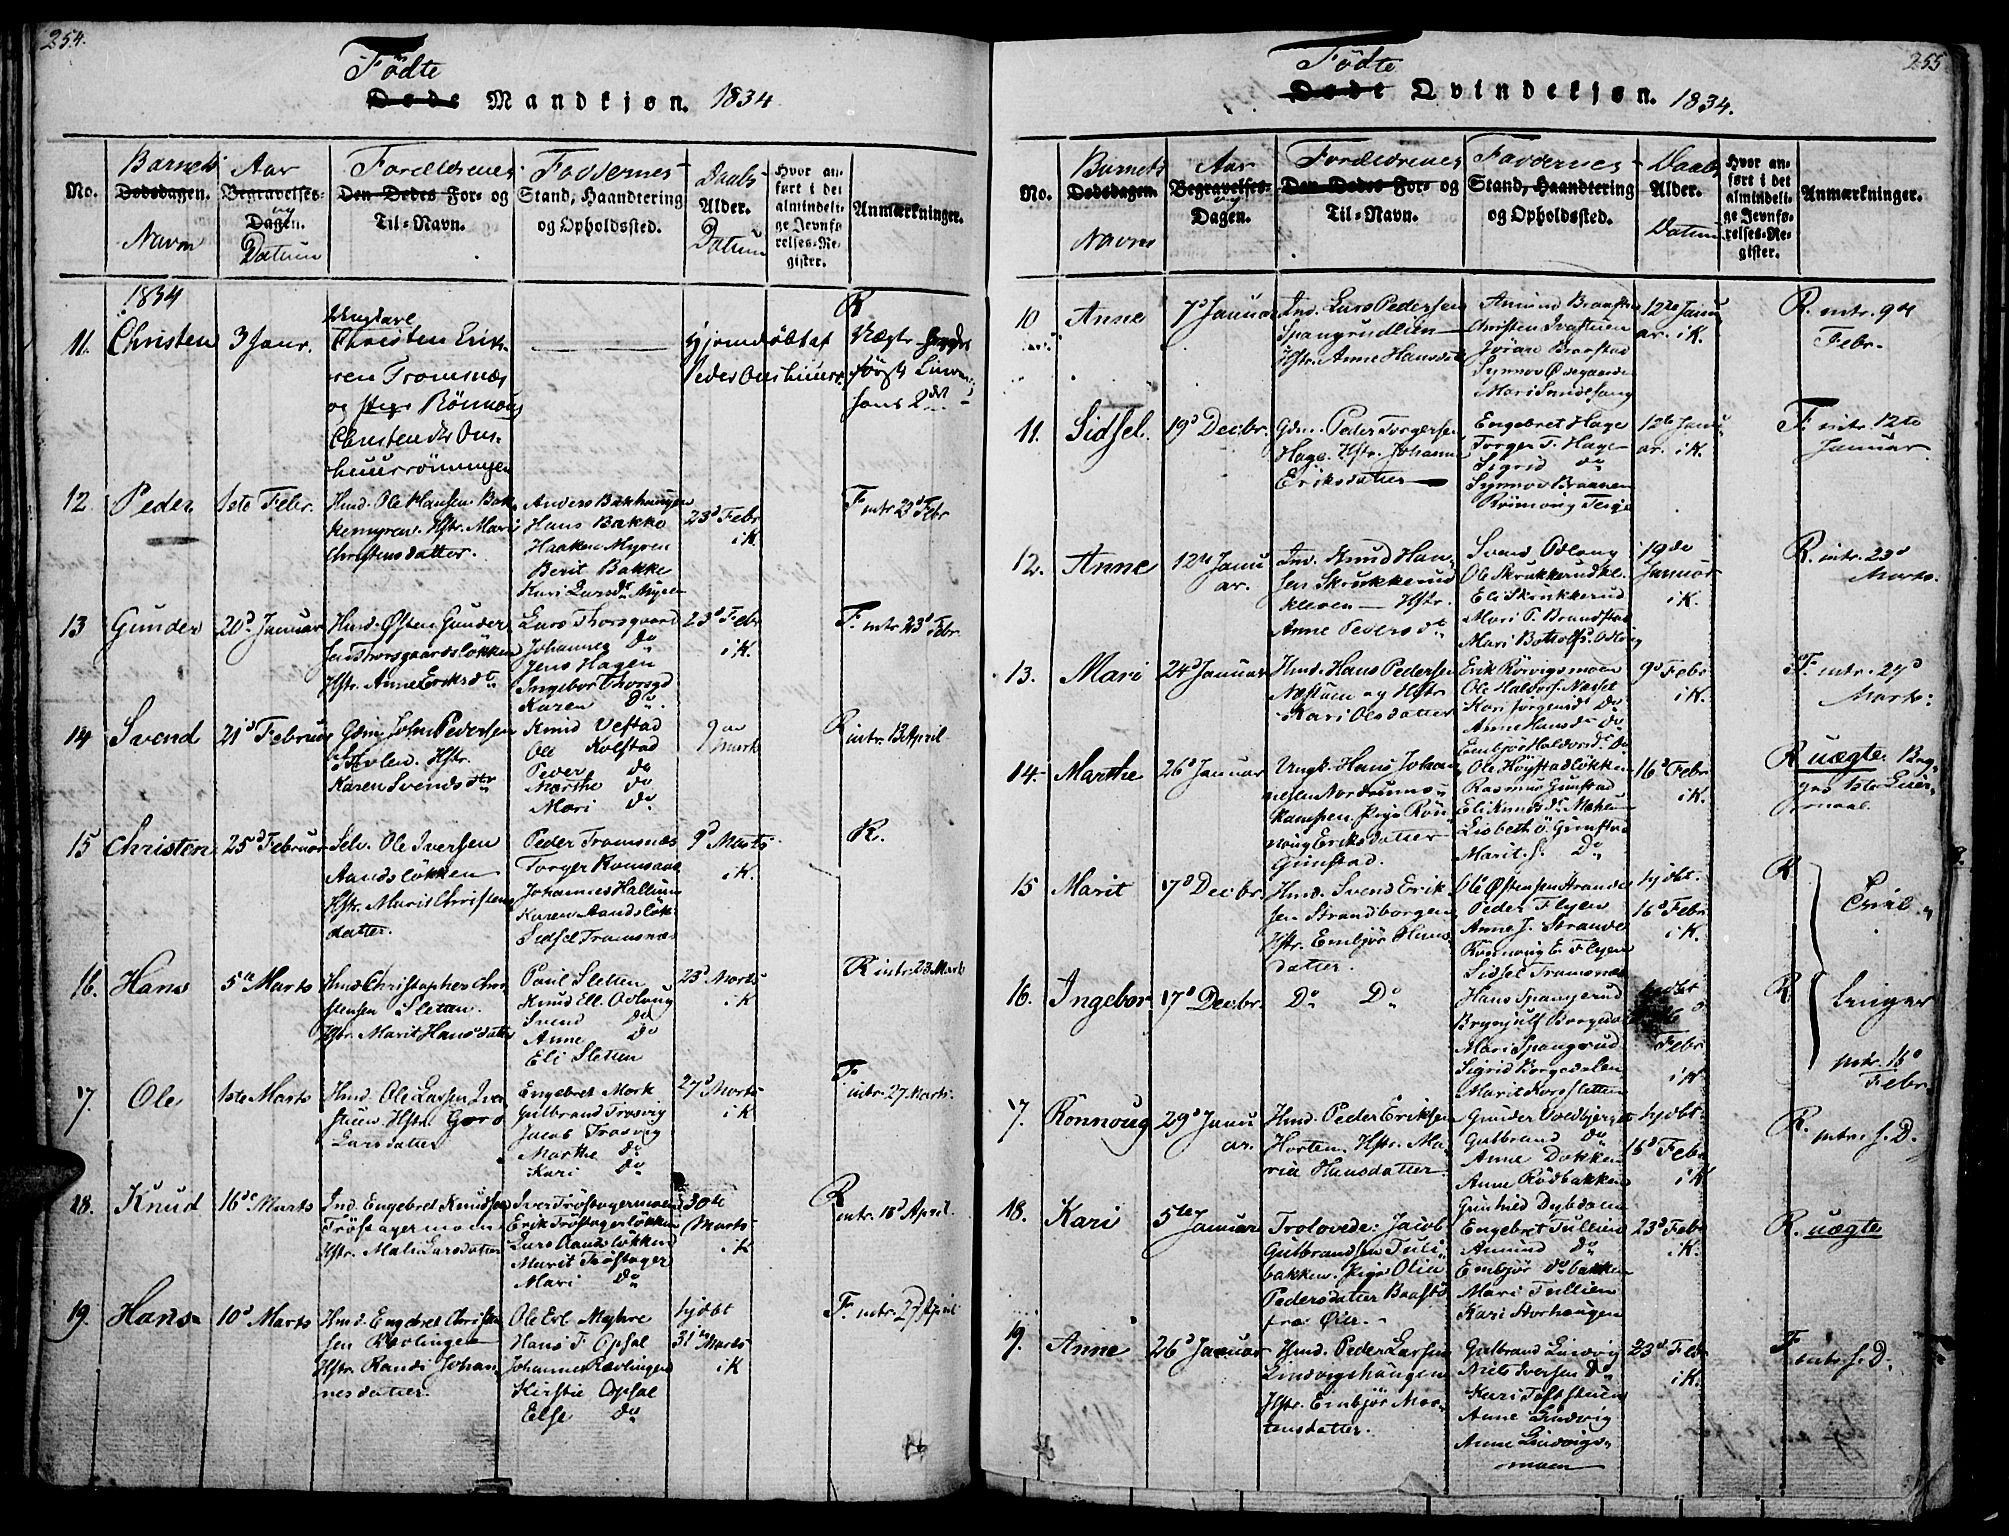 254.
Födte
Döde Mandkjøn. 1834
No.
Barnets
Dødsdagen.
Navn
Aar
Begravelses-
og
Dagen.
Datum
Forældrenes
Den Dødes For- og
Til-Navn.
Faddernes
Stand, Haandtering
og Opholdssted.
Daabs
Alder.
Datum
Hvor an-
ført i det
almindeli-
ge Jevnfø-
relses-Re-
gister.
Anmærkninger.
1834
11. Christen 3 Janr.
Ungkarl
Christen Erik-
sen Tromsnæs
og Pige Rönnoug
Christensdr Ons-
huusrönningen
Hjemdöbt af
Peder Onshuus
R
Uægte
12 Peder 1ste Febr.
Hmd. Ole Hansen Bak-
kemyren. Hstr. Mari
Christensdatter.
Anders Bakhaugen
Hans Bakke
Haaken Myren
Berit Bakke
Kari Larsdr Myren
23d Febr
i K.
F intr 23d Febr
13 Gunder 20d Januar
Hmd. Østen Gunder-
sen Thorsgaardslökken
Hstr. Anne Eriksdtr
Lars Thorsgaard
Johannes Do
Jens Hagen
Ingebor Thorsgd
Karen Do
23d Febr
i K.
F. intr 23d Febr.
14 Svend 21d Februar
Gdm. John Pedersen
Hstr.
Karen Svendsdtr
Knud Vestad
Ole Kolstad
Peder do
Marthe do
Mari do
9de
Marts
R intr. 13 April
15 Christen 25d Februar
Selv. Ole Iversen
Aandslökken
Hstr. Marit Christens-
datter.
Peder Tromsnæs
Torger Romsaas
Johannes Hallum
Karen Aandslök.
Sidsel Tromsnæs
9d Marts
i K.
R.
16. Hans 5te Marts
Hmd Christopher Chri-
stensen Sletten.
Hstr. Marit Hansdatter
Poul Sletten
Knud Ell. Odloug
Svend Do
Anne Do
Eli Sletten
23d Marts
i K
R intr. 23 Marts
17. Ole 1ste Marts
Hmd. Ole Larsen Iver-
stuen. Hstr. Goro
Larsdatter
Engebret Mork
Gulbrand Trosvig
Jacob Trosvig
Marthe do
Kari Do
27d Marts
i K
F intr. 27 Marts.
18. Knud 16de Marts
Ind. Engebret Knudsen
Tröstagermoden
Hstr. Mali Larsdatter
Iver Tröstagermoden
Erik Tröstagerlökken
Lars Randslökken
Marit Tröstager
Mari Do
30te
Marts
i K
R intr. 18d April.
19. Hans 10d Marts
Hmd. Engebret Christen-
sen Rævlingen
Hstr. Randi Johan-
nesdatter.
Ole Erl. Myhre
Hans F. Opsal
Johannes Rævlingen
Kirstie Opsal
Else Do
hjdbt
31te Marts
i K
F. intr. 27 April
255
Födte
Døde Qvindekjøn. 1834.
No.
Barnets
Dødsdagen.
Navn
Aar
Begravelses-
og
Dagen.
Forældrenes
Den Dødes For- og
Til-Navn.
Faddernes
Stand, Haandtering
og Opholdssted.
Daabs
Alder.
Datum
Hvor an-
ført i det
almindeli-
ge Jevnfø-
relses-Re-
gister.
Anmærkninger.
10 Anne 7d Januar
Ind. Lars Pedersen
Spangrudlien
Hstr. Anne Hansdatt
Amund Braastad
Christen Ivastuen
Jöran Braastad
Synnov Ødegaarden
Mari Sundesang
12te Janu-
ar. i K.
R. intr. 9de
Febr.
11. Sidsel. 19d Decbr.
Gdm. Peder Torgersen
Hage. Hstr. Johanne
Eriksdatter
Engebret Hage
Torger T. Hage
Sigrid do
Synnov Braanen
Rönnoug Teige
12te Janu-
ar. i K.
F. intr. 12te
Januar
12. Anne 12te Janu
ar.
Ind. Knud Han-
sen Skrukkerud
kleven Hstr.
Anne Pedersdtr
Svend Odloug
Ole Skrukkerudkl.
Eli Skrukkerud
Mari P. Braastad
Mari Bottolfs. Odloug
19de
Januar
i K.
R. intr. 23d
Marts.
13. Mari 24d Januar
Hmd. Hans Pedersen
Næstuen og Hstr.
Kari Olsdatter
Erik Rövigsmoen
Ole Haldors. Næset
Kari Torgersdr Do
Anne Hansdr do
Embjör Haldorsdr Do
9d Febr
i K.
F. intr. 27d
Marts.
14. Marthe 26d Januar
Ungk. Hans Johan-
nesen Nordrums-
kampen. Pige Rön-
noug Eriksdatter
Gunstad.
Ole Höystadlökken
Rasmus Gunstad
Eli Knudsdr Mohen
Lisbeth Ö. Gunstad
Marit S. Do
16d Febr
i K.
R uægte. Beg-
ges 1ste Leier-
maal.
15 Marit 17d Decbr.
Hmd. Svend Erik-
sen Strandborgen
Hstr. Embjör Hans-
datter.
Ole Østensen Strande
Peder Flyen
Anne J. Strande
Rönnoug E. Flyen
Sidsel Tromsnæs
hjdbt.
16d Febr.
i K.
R
Tvil-
16. Ingebor 17d Decbr.
Do Do
Hans Spangerud
Brynjulf Borgedal
Mari Spangrud
Sigrid Borgedalen
Marit Korsstetten
hjdbt
Febr.
i K
R
linger
intr. 16d
Febr.
17. Rönnoug 29d Janu
ar.
Hmd. Peder Eriksen
Horten. Hstr. Ma-
ria Hansdatter.
Gunder Voldbjerget
Gulbrand do
Anne Dokken
Anne Rödbakken
Gunhild Dybdalen
hjdbt.
16d Febr
i K
R. intr. s. D.
18. Kari 5te Januar
Trolovede: Jacob
Gulbrandsen Tuli-
bakken. Pige Olia
Pedersdatter Baastö
fra Öier.
Engebret Tullien
Amund Do
Embjör do bakken
Mari Tullien
Kari Storhaugen
23d Febr
i K.
R. uægte
19. Anne 26d Januar
Hmd. Peder Larsen
Lindvigshaugen
Hstr. Embjör Mor-
tensdatter.
Gulbrand Lindvig
Niels Iversen Do
Kari Toftstuen
Anne Lindvig
Anne Lindvigs-
moen
23d Febr
i K.
F. intr. s. D.